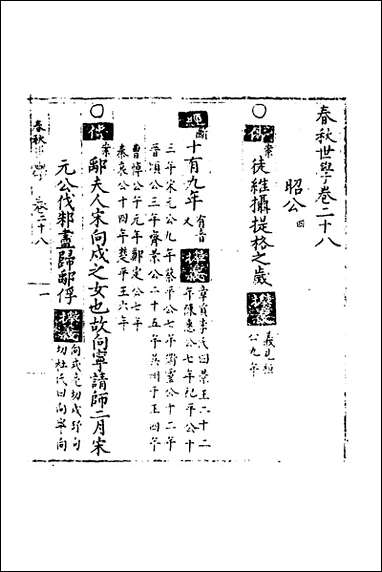 春秋世學卷二十八
昭公 四
案 徒維攝提格之歲 義見桓公九年
經 十有九年 有音又 章貢李氏曰景王二十二年陳惠公七年杞平公十
三年宋元公九年蔡平公七年衛靈公十二年
晉頃公三年齊景公二十五年吳州于王四年
曹悼公午元年鄭定公七年
秦哀公十四年楚平王六年
傳 案 鄅夫人宋向戌之女也故向寧請師二月宋
元公伐邾盡歸鄅俘 向式亮切戌切杜氏曰向寧向
春秋 卷二十八 一